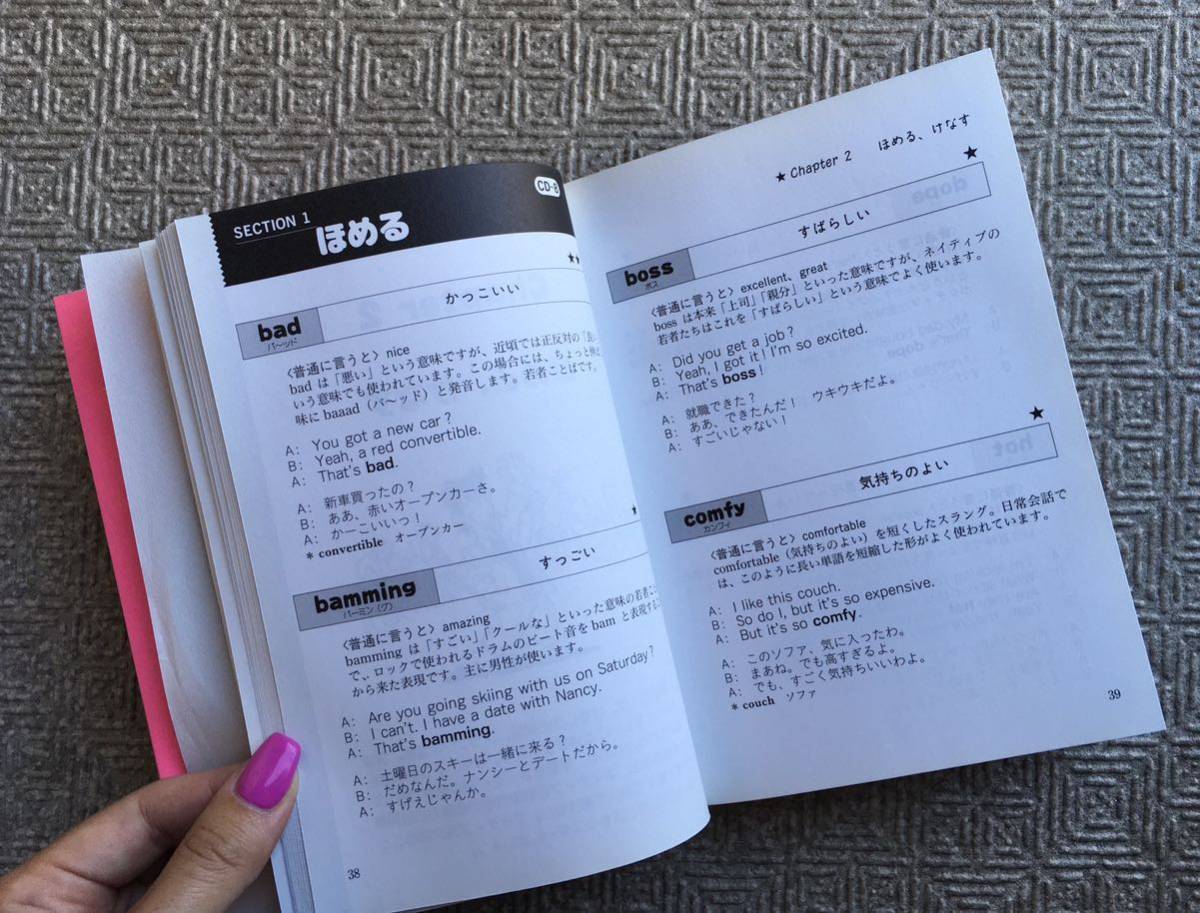 SECTION 1
ほめる
CD-8
★★
bad
バ〜ッド
かっこいい
〈普通に言うと〉nice
bad は「悪い」という意味ですが、近頃では正反対の「良
いう意味でも使われています。この場合には、ちょっと
味に baaad（バ〜ッド）と発音します。若者ことばです。
A: You got a new car?
B: Yeah, a red convertible.
A: That's bad.
A: 新車買ったの？
B: ああ、赤いオープンカーさ。
A: かーこいいっ！
* convertible オープンカー
★
bamming
バーミン（グ）
すっごい
〈普通に言うと〉amazing
bamming は「すごい」「クールな」といった意味の若者こ
で、ロックで使われるドラムのビート音を bam と表現する
から来た表現です。主に男性が使います。
A: Are you going skiing with us on Saturday?
B: I can't. I have a date with Nancy.
A: That's bamming.
A: 土曜日のスキーは一緒に来る？
B: だめなんだ。ナンシーとデートだから。
A: すげえじゃんか。
38
★ Chapter 2 ほめる、けなす
★
boss
ボス
すばらしい
〈普通に言うと〉excellent、great
boss は本来「上司」「親分」といった意味ですが、ネイティブの
若者たちはこれを「すばらしい」という意味でよく使います。
A: Did you get a job?
B: Yeah, I got it! I'm so excited.
A: That's boss!
A: 就職できた？
B: ああ、できたんだ！ ウキウキだよ。
A: すごいじゃない！
★
comfy
カンフィ
気持ちのよい
〈普通に言うと〉comfortable
comfortable（気持ちのよい）を短くしたスラング。日常会話で
は、このように長い単語を短縮した形がよく使われています。
A: I like this couch.
B: So do I, but it's so expensive.
A: But it's so comfy.
A: このソファ、気に入ったわ。
B: まあね。でも高すぎるよ。
A: でも、すごく気持ちいいわよ。
* couch ソファ
39